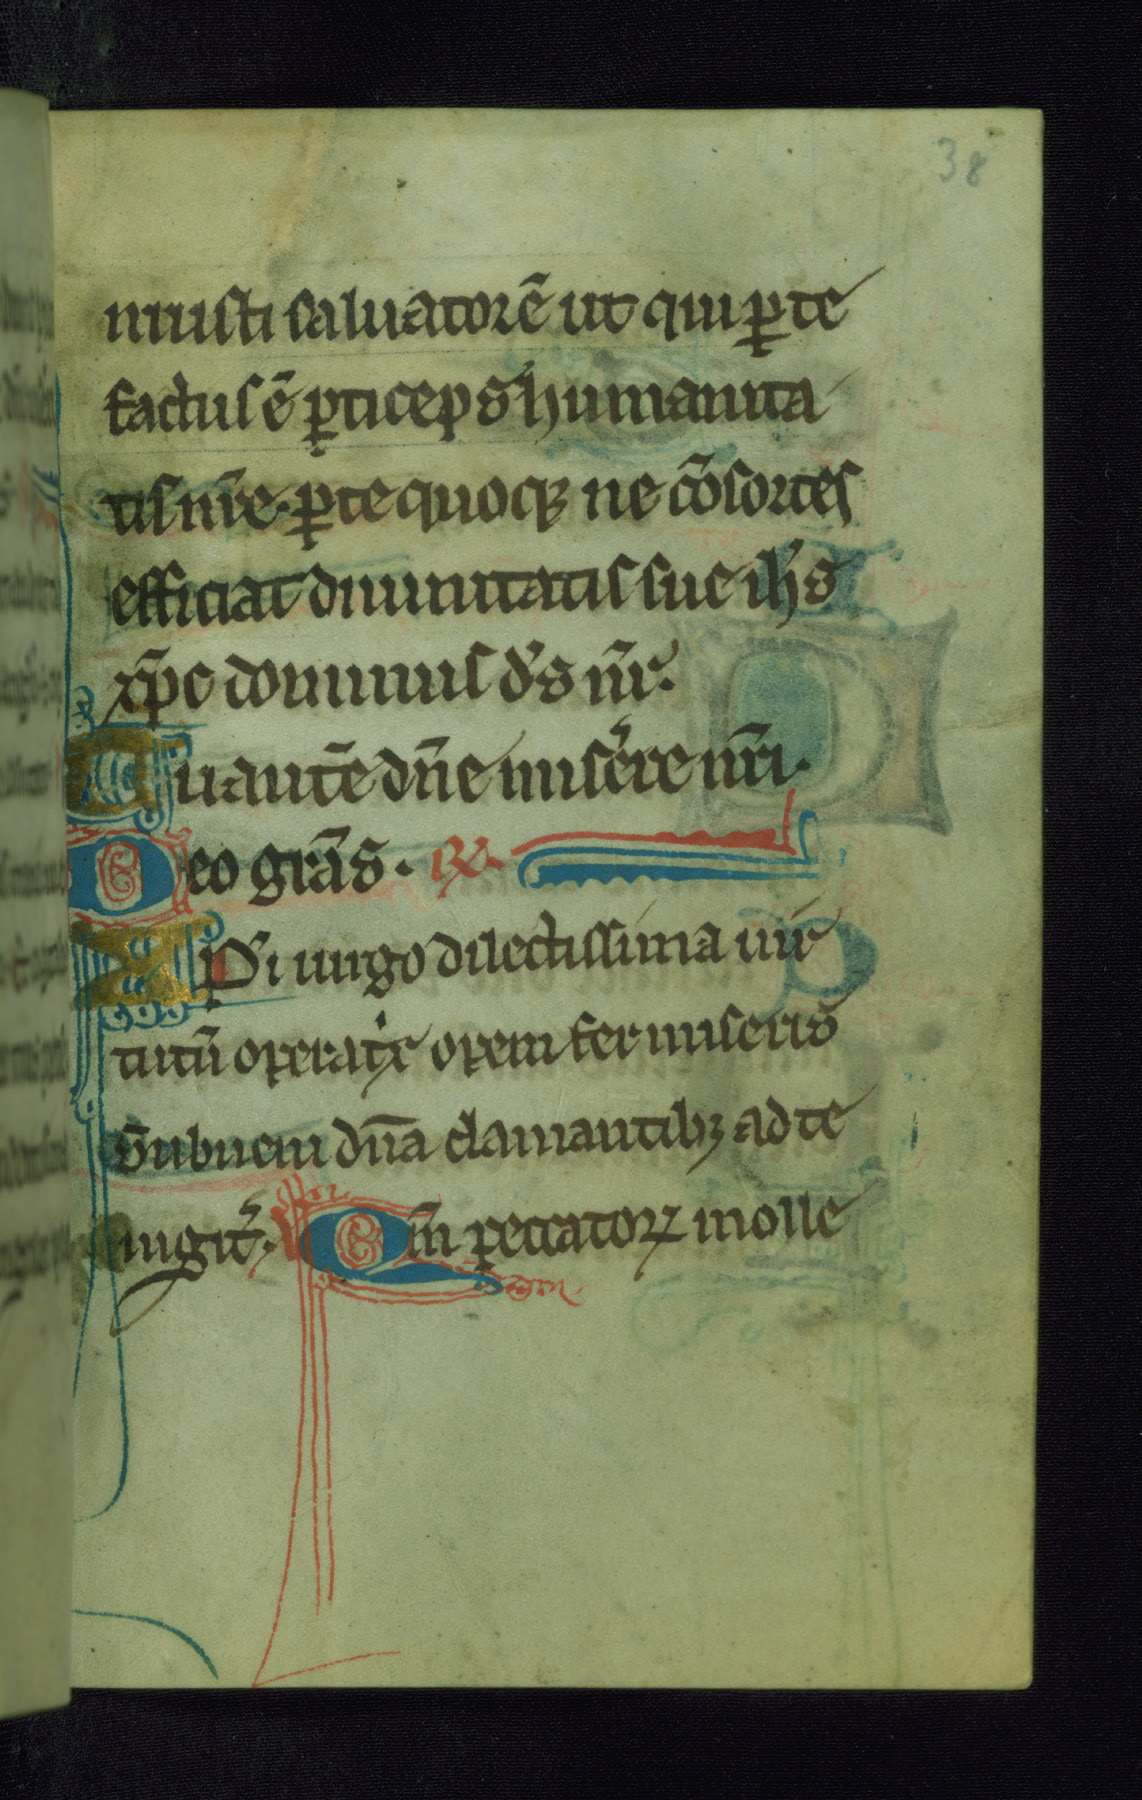 38
nuisti saluatorē ut qui ꝑ te
factus ē ꝑticeps humanita
tis nr̄e. ꝑ te quoqꝫ nos cōsortes
efficiat diuinitatis sue ih̄s
xp̄c dominus d̄s nr̄.
Tu autē dn̄e misere nr̄i.
Deo grās. ℟.
Xp̄i uirgo dilectissima uir
tutū operat̄x opem fer miseris
subueni dn̄a clamantibꝫ ad te
iugit̄. Qm̄ peccatoꝝ mole